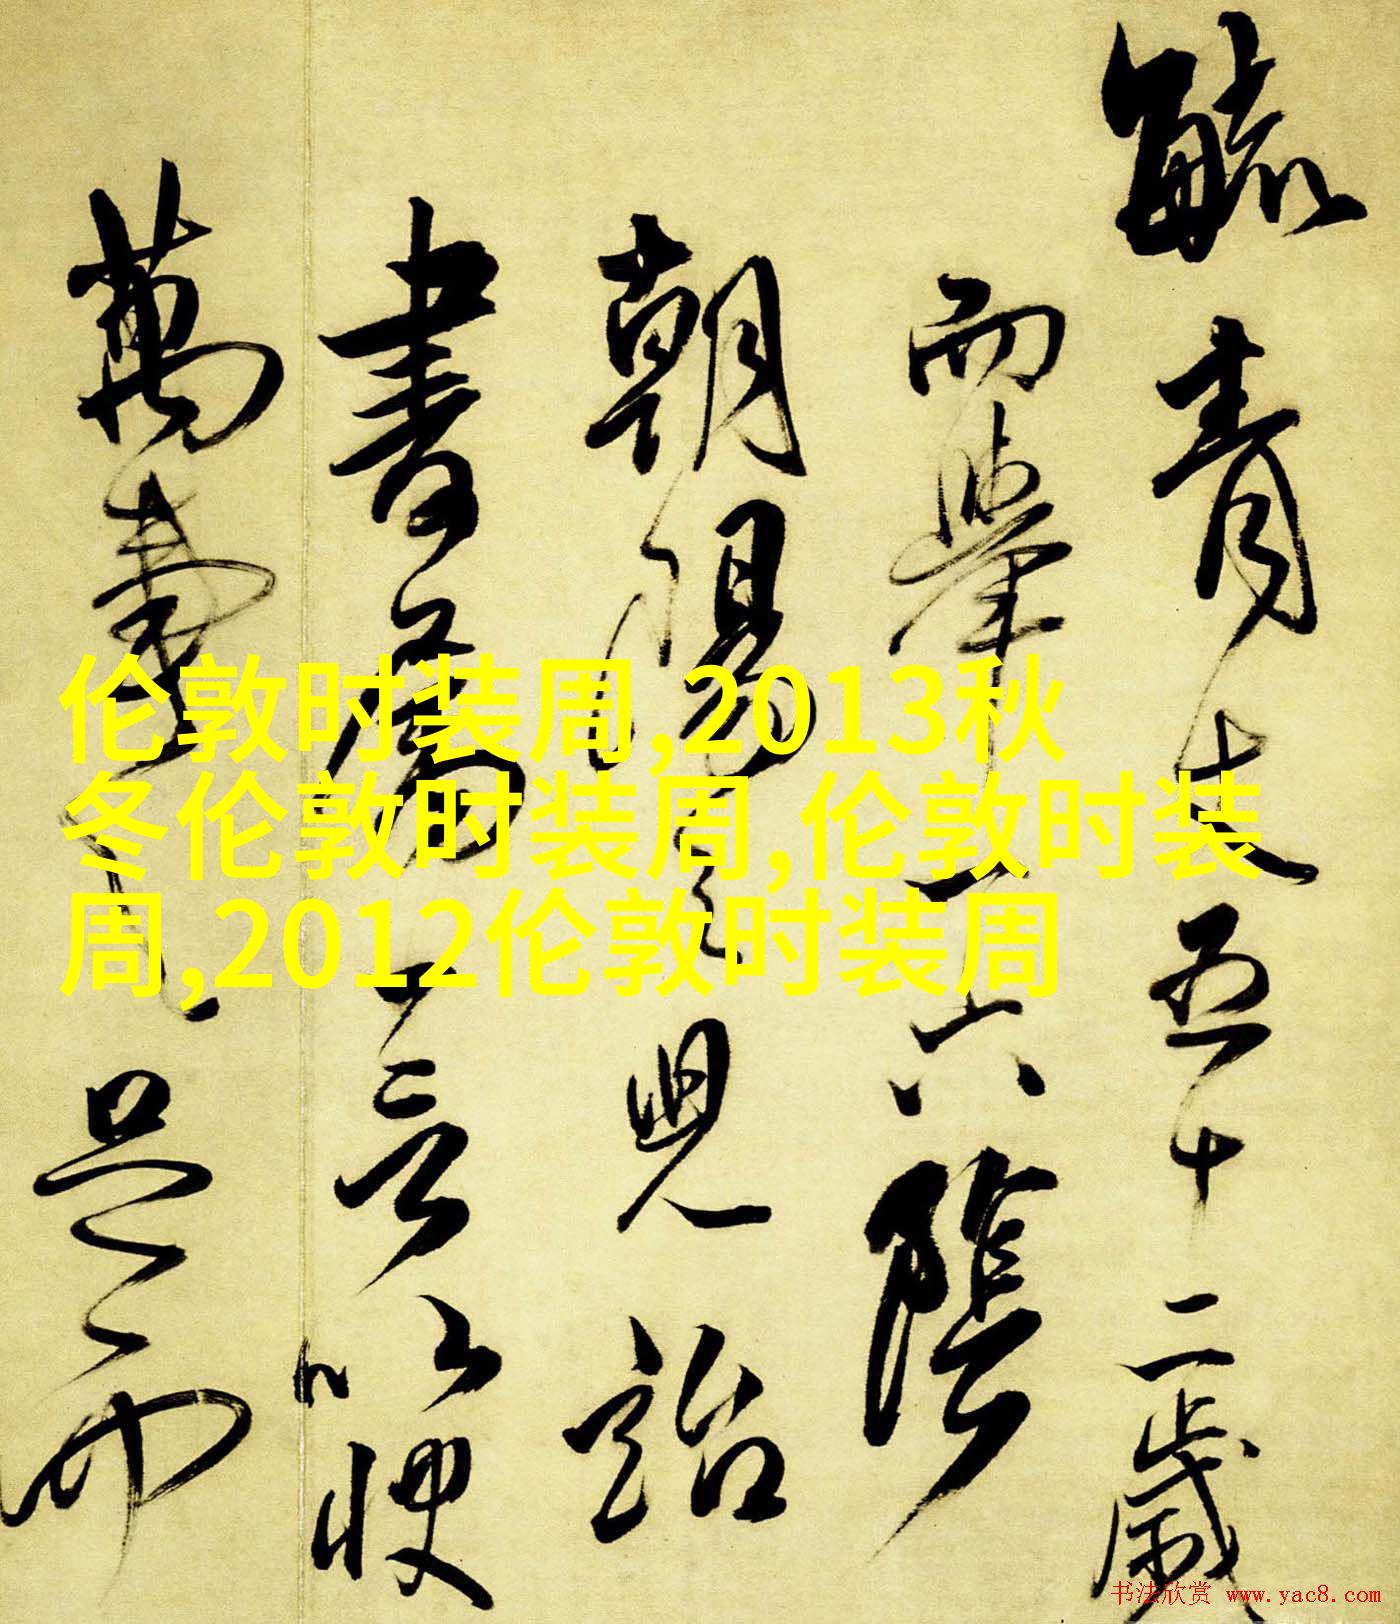 毓青丈五十二歲
而舉丁六陰
朝陽之見詒
書屬一言以梗
萬壽
是而
伦敦时装周,2013秋
冬伦敦时装周,伦敦时装
周,2012伦敦时装周
书法欣赏 www.yac8.com